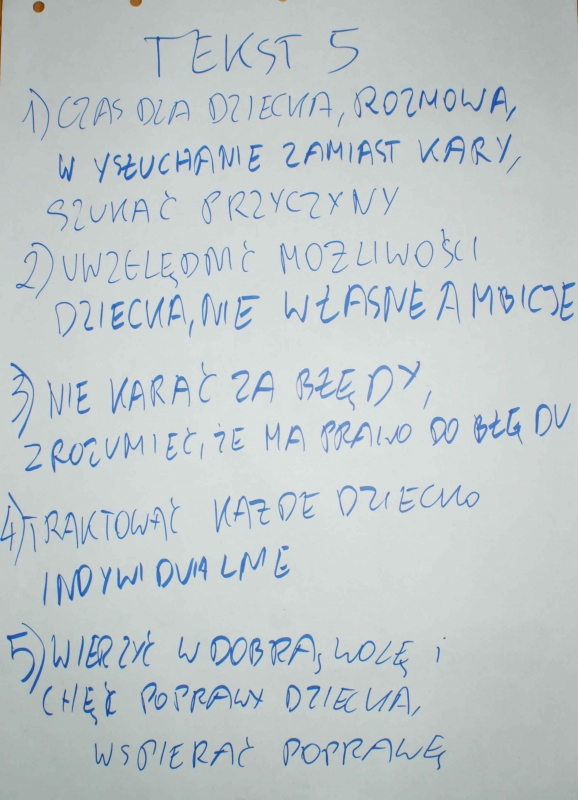 TEKST 5
1) CZAS DLA DZIECKA, ROZMOWA,
WYSŁUCHANIE ZAMIAST KARY,
SZUKAĆ PRZYCZYNY
2) UWZGLĘDNIĆ MOŻLIWOŚCI
DZIECKA, NIE WŁASNE AMBICJE
3) NIE KARAĆ ZA BŁĘDY,
ZROZUMIEĆ, ŻE MA PRAWO DO BŁĘDU
4) TRAKTOWAĆ KAŻDE DZIECKO
INDYWIDUALNIE
5) WIERZYĆ W DOBRĄ WOLĘ i
CHĘĆ POPRAWY DZIECKA,
WSPIERAĆ POPRAWĘ